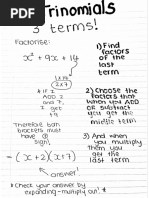 Trinomials
3 terms!
Factorise:
x² + 9x + 14
1) Find
factors
of the
last
term
(2x7)
If I
ADD 2
and 7,
I get
+9
2) Choose the
factors that
when you ADD
or subtract
you get the
middle term
Therefore
brackets must
have
3) And when
you multiply
them you
get the
last term
= (x+2)(x+7)
answer!
* Check your answer by
expanding - multiply out!